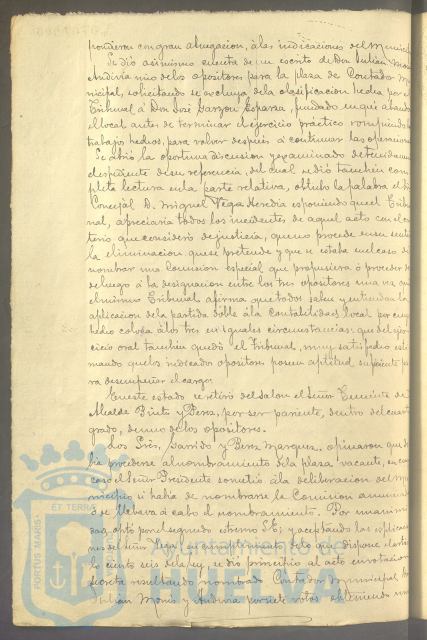 pondieron con gran abnegacion, á las indicaciones del
Se dió asimismo cuenta de un escrito de Don Julian
Andivia uno de los opositores para la plaza de Contador
nicipal, solicitando se excluya de la clasificacion hecha por el
Tribunal á Don José Garzon Esparza, fundado en que abandonó
el local antes de terminar el ejercicio práctico rompiendo
trabajos hechos, para volver despues á continuar las operaciones
Se abrió la oportuna discusion y examinado detenidamente
espediente de su referencia, del cual se dió tambien com
pleta lectura en la parte relativa, obtubo la palabra el
Concejal D. Miguel Vega Heredia esponiendo que el Tribu
nal, apreciaria todos los incidentes de aquel acto con el cri
terio que consideró de justicia, que no procede en su sentir
la eliminacion que se pretende y que se estaba en el caso de
nombrar una Comision especial que propusiera ó proceder des
de luego á la designacion entre los tres opositores una vez que
el mismo Tribunal afirma que todos saben y entienden la
aplicacion de la partida doble á la Contabilidades local por cuyo
hecho coloca á los tres en iguales circunstancias: que del ejer
cicio oral tambien quedó el Tribunal, muy satisfecho esti
mando que los indicados opositores poseen aptitud suficiente pa
ra desempeñar el cargo.
En este estado se retiró del Salon el Señor Teniente de
Alcalde Pinto y Perez, por ser pariente, dentro del cuarto
grado, de uno de los opositores.
Los Sres. Garrido y Perez Marquez, opinaron que de
bia procederse al nombramiento de la plaza vacante, en cuyo
caso el Señor Presidente sometió á la deliberacion del Mu
nicipio si habia de nombrarse la Comision anunciada
ó se llevaba á cabo el nombramiento. Por unanimi
dad optó por el segundo estremo S.E. y aceptando las esplicacio
nes del Señor Vega, en cumplimiento de lo que dispone el artícu
lo ciento seis de la ley, se dió principio al acto en votacion
secreta resultando nombrado Contador municipal, Don
Julian Mons y Andivia por siete votos obteniendo
PORTUS MARIS
ET TERRAE
Ayuntamiento de
HUELVA